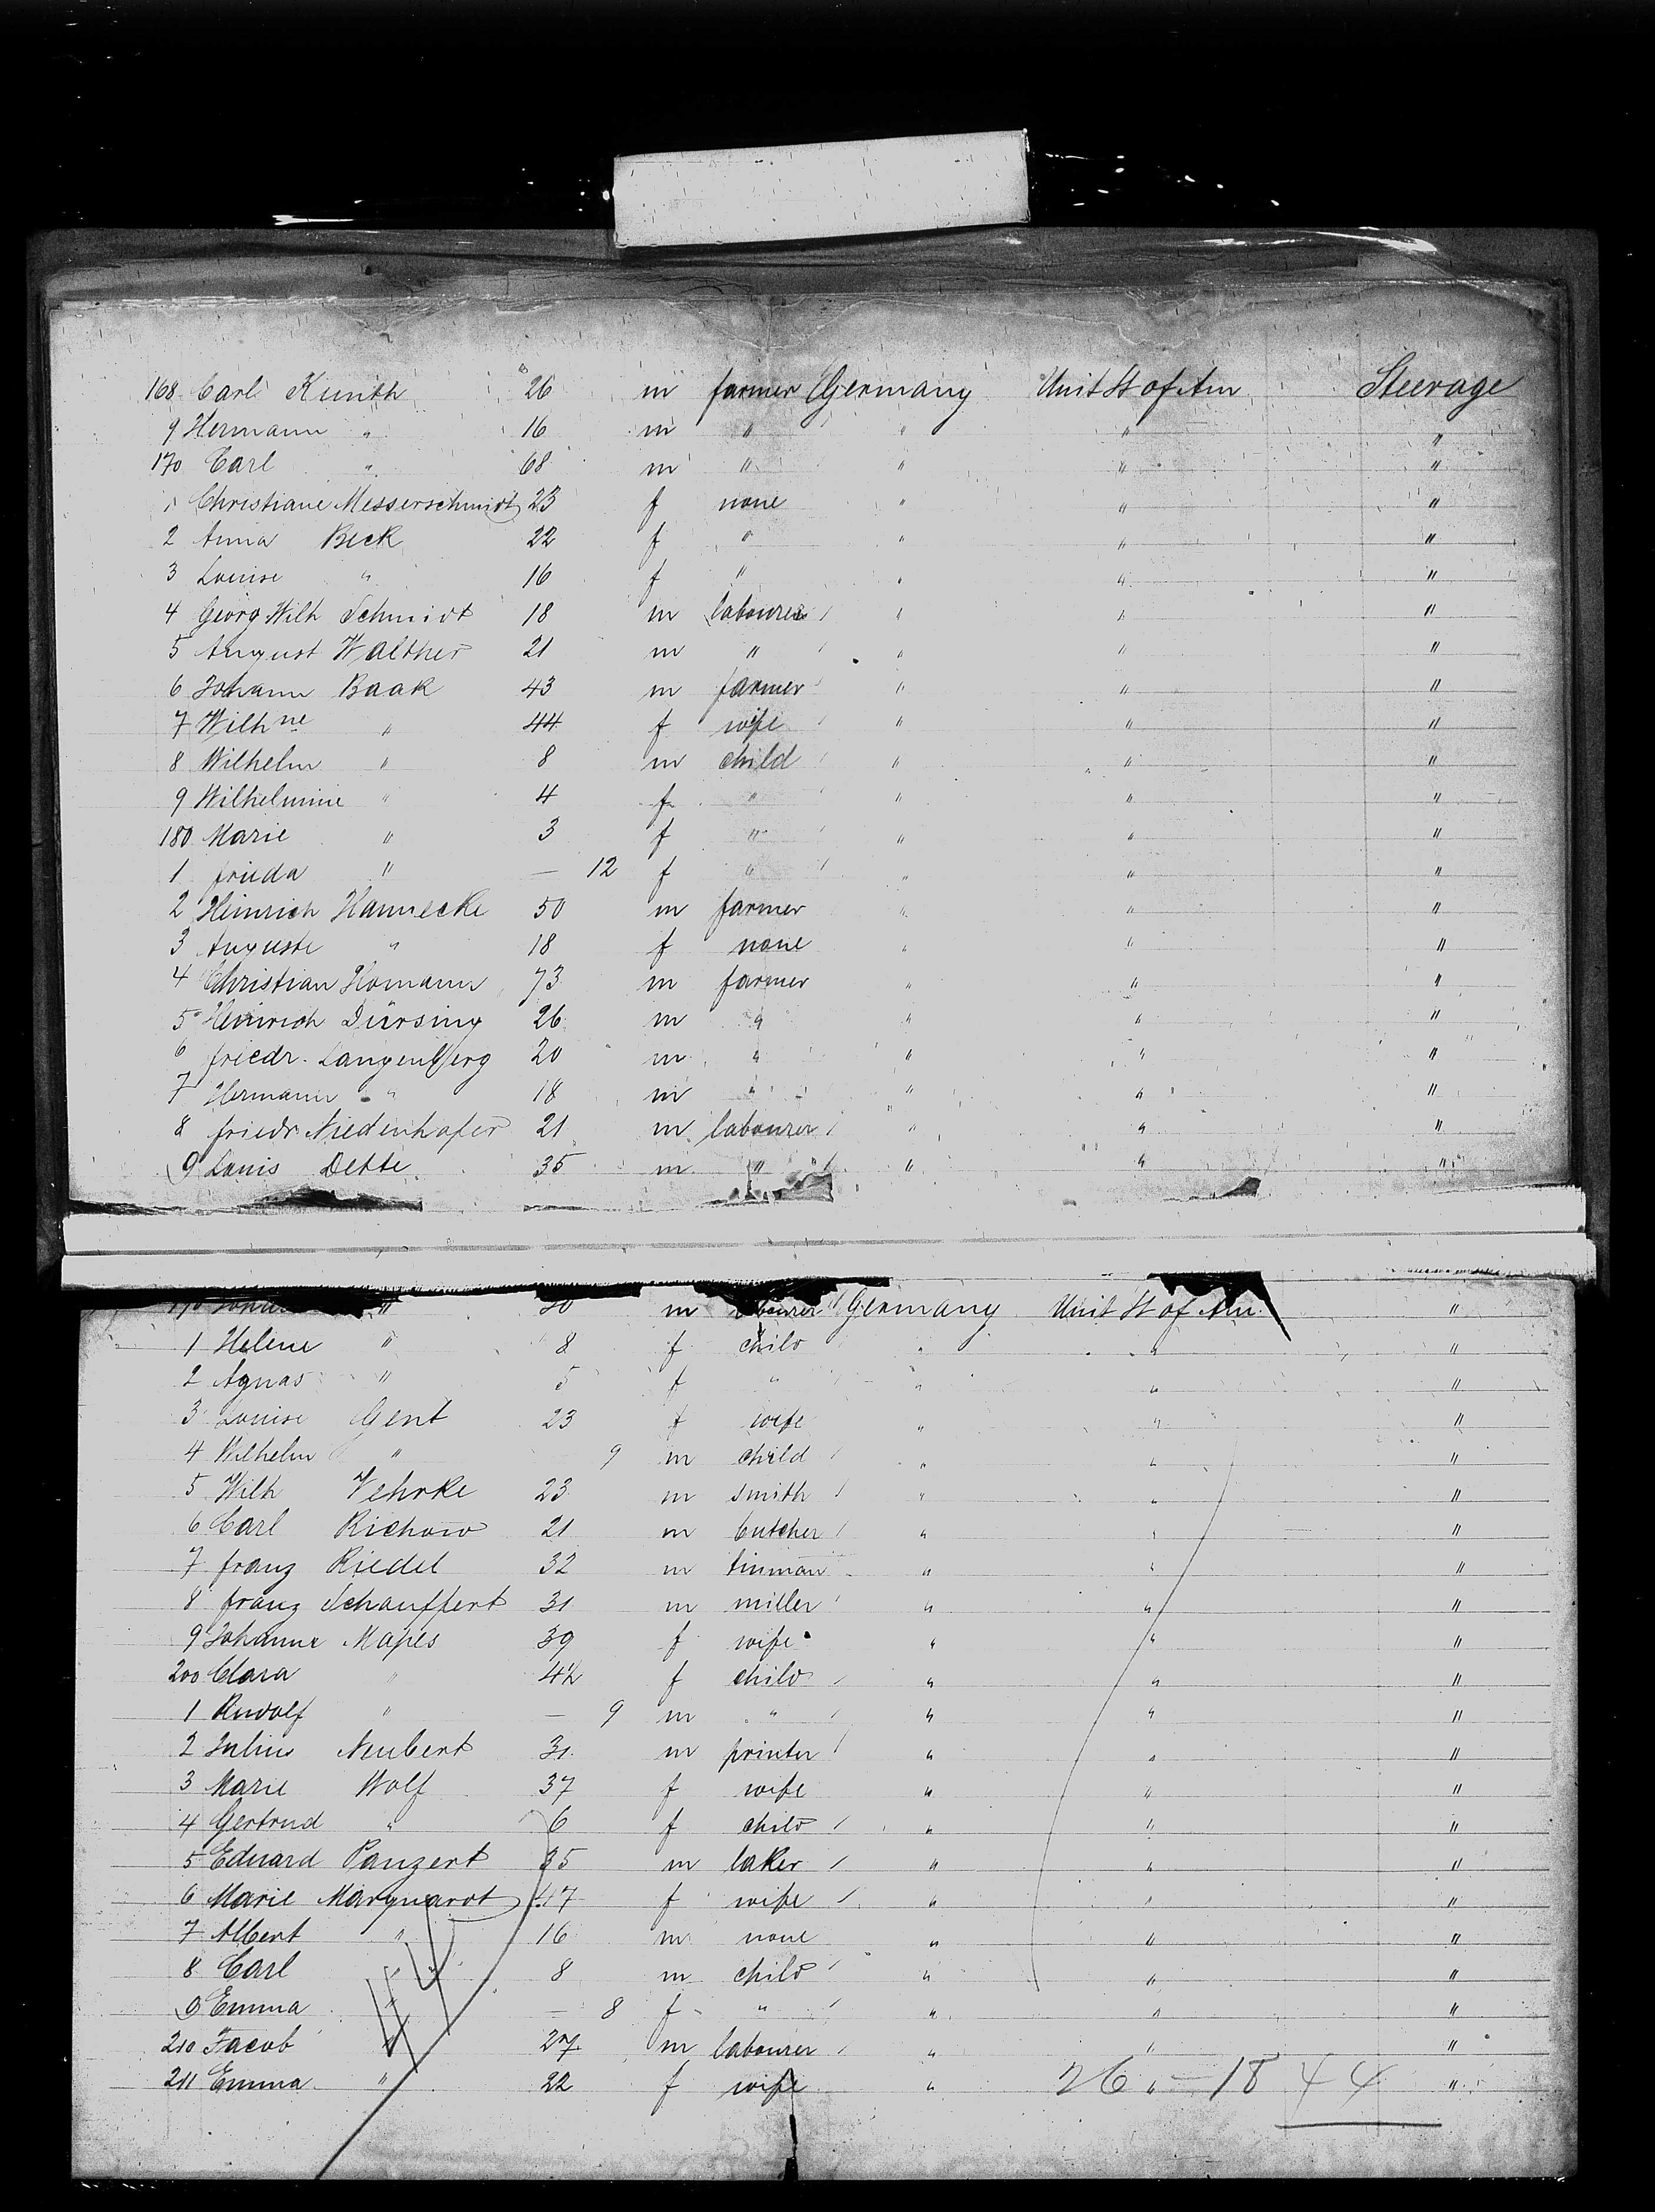 168 Carl Kunth 26 m farmer Germany Unit St of Am Steerage
9 Hermann " 16 m " " " "
170 Carl " 68 m " " " "
1 Christiane Messerschmidt 23 f none " " "
2 Anna Beck 22 f " " " "
3 Louise " 16 f " " " "
4 Georg Wilh Schmidt 18 m labourer " " "
5 August Walther 21 m " " " "
6 Johann Baak 43 m farmer " " "
7 Wilhne " 44 f wife " " "
8 Wilhelm " 8 m child " " "
9 Wilhelmine " 4 f " " " "
180 Marie " 3 f " " " "
1 frieda " — 12 f " " " "
2 Heinrich Hannecke 50 m farmer " " "
3 Auguste " 18 f none " " "
4 Christian Homann 73 m farmer " " "
5 Heinrich Dürsing 26 m " " " "
6 friedr. Langenberg 20 m " " " "
7 Hermann " 18 m " " " "
8 friedr Niedenhofer 21 m labourer " " "
9 Louis Dette 35 m " " " "
190 " m labourer Germany Unit St of Am "
1 Helene " 8 f child " " "
2 Agnas " 5 f " " " "
3 Louise Gent 23 f wife " " "
4 Wilhelm " 9 m child " " "
5 Wilh Vehrke 23 m smith " " "
6 Carl Richow 21 m butcher " " "
7 franz Riedel 32 m tinman " " "
8 franz Schauffert 31 m miller " " "
9 Johanne Mapes 39 f wife " " "
200 Clara " 4½ f child " " "
1 Rudolf " — 9 m " " " "
2 Julius Neubert 31 m printer " " "
3 Marie Wolf 37 f wife " " "
4 Gertrud " 6 f child " " "
5 Eduard Panzert 35 m baker " " "
6 Marie Marquardt 47 f wife " " "
7 Albert " 16 m none " " "
8 Carl " 8 m child " " "
9 Emma " — 8 f " " " "
210 Jacob " 27 m labourer " " "
211 Emma " 22 f wife " " "
44
26 — 18 44